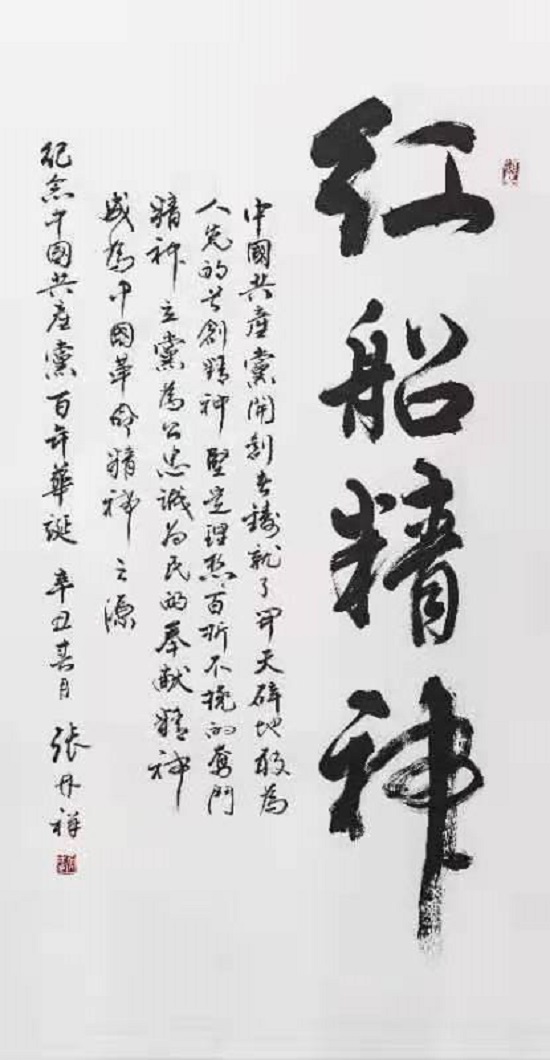 红船精神
中國共產黨開創者鑄就了開天辟地敢為
人先的首創精神堅定理想百折不撓的奮鬥
精神立黨為公忠诚为民的奉献精神
成為中國革命精神之源
纪念中國共產黨百年華誕 辛丑春月 张丹祥